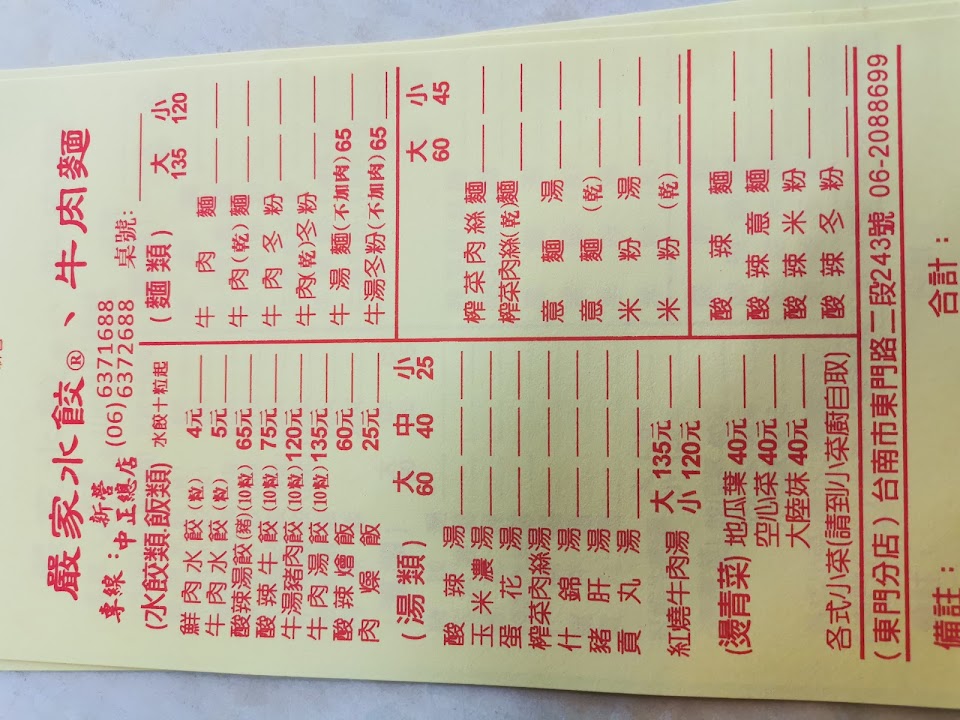 嚴家水餃®、牛肉麵
專線：新營中正總店 (06)6371688 6372688 桌號:
(水餃類.飯類) 水餃十粒起
鮮肉水餃(粒) 4元
牛肉水餃(粒) 5元
酸辣湯餃(豬)(10粒) 65元
酸辣牛餃(10粒) 75元
牛湯豬肉餃(10粒) 120元
牛肉湯餃(10粒) 135元
酸辣燴飯 60元
肉燥飯 25元
(湯類) 大60 中40 小25
酸辣湯
玉米濃湯
蛋花湯
榨菜肉絲湯
什錦湯
豬肝湯
貢丸湯
紅燒牛肉湯 大 135元
小 120元
(燙青菜) 地瓜葉 40元
空心菜 40元
大陸妹 40元
各式小菜(請到小菜廚自取)
(麵類) 大135 小120
牛肉麵
牛肉(乾)麵
牛肉冬粉
牛肉(乾)冬粉
牛湯麵(不加肉)65
牛湯冬粉(不加肉)65
大60 小45
榨菜肉絲麵
榨菜肉絲(乾)麵
意麵湯
意麵(乾)
米粉湯
米粉(乾)
酸辣麵
酸辣意麵
酸辣米粉
酸辣冬粉
(東門分店)台南市東門路二段243號 06-2088699
備註： 合計：